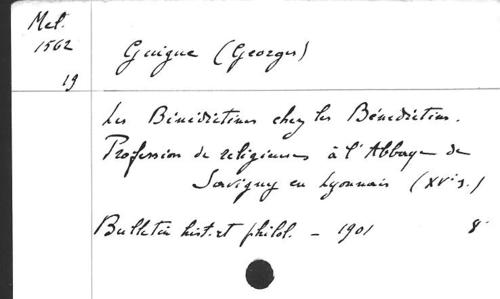 Mel.
1562
19
Guigue (Georges)
Les Bénédictines chez les Bénédictins.
Profession de religieuses à l'Abbaye de
Savigny en Lyonnais (XVe s.)
Bulletin hist. et philol. - 1901 8°